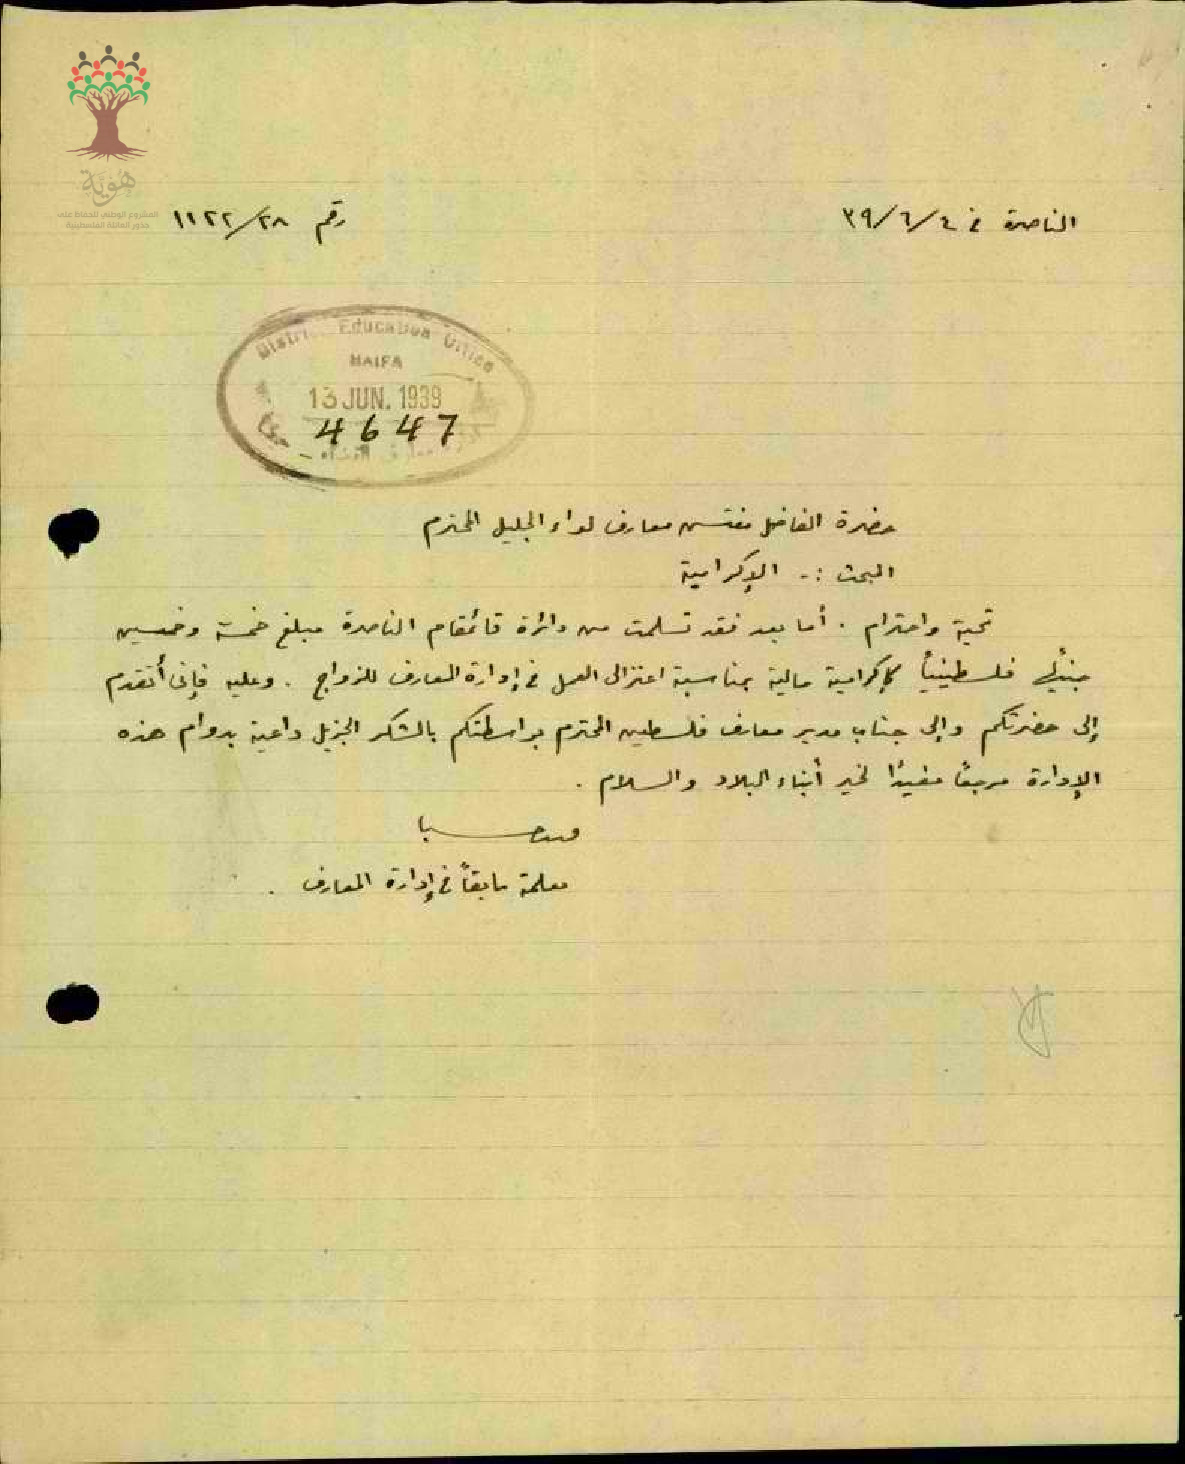 هوية
المشروع الوطني للحفاظ على
جذور العائلة الفلسطينية
الناصرة في ٤/٦/٣٩
رقم ١١٢٢/٢٨
District Education Office
HAIFA
13 JUN. 1939
4647
حضرة الفاضل مفتش معارف لواء الجليل المحترم
المبحث :- الإكرامية
تحية واحترام . أما بعد فقد تسلمت من دائرة قائمقام الناصرة مبلغ خمسة وخمسين
جنيهاً فلسطينياً كإكرامية مالية بمناسبة اعتزالي العمل في إدارة المعارف للزواج . وعليه فإني أتقدم
إلى حضرتكم وإلى جناب مدير معارف فلسطين المحترم بواسطتكم بالشكر الجزيل داعية بدوام هذه
الإدارة مرجعاً مفيدًا لخير أبناء البلاد والسلام .
معلمة سابقاً في إدارة المعارف .